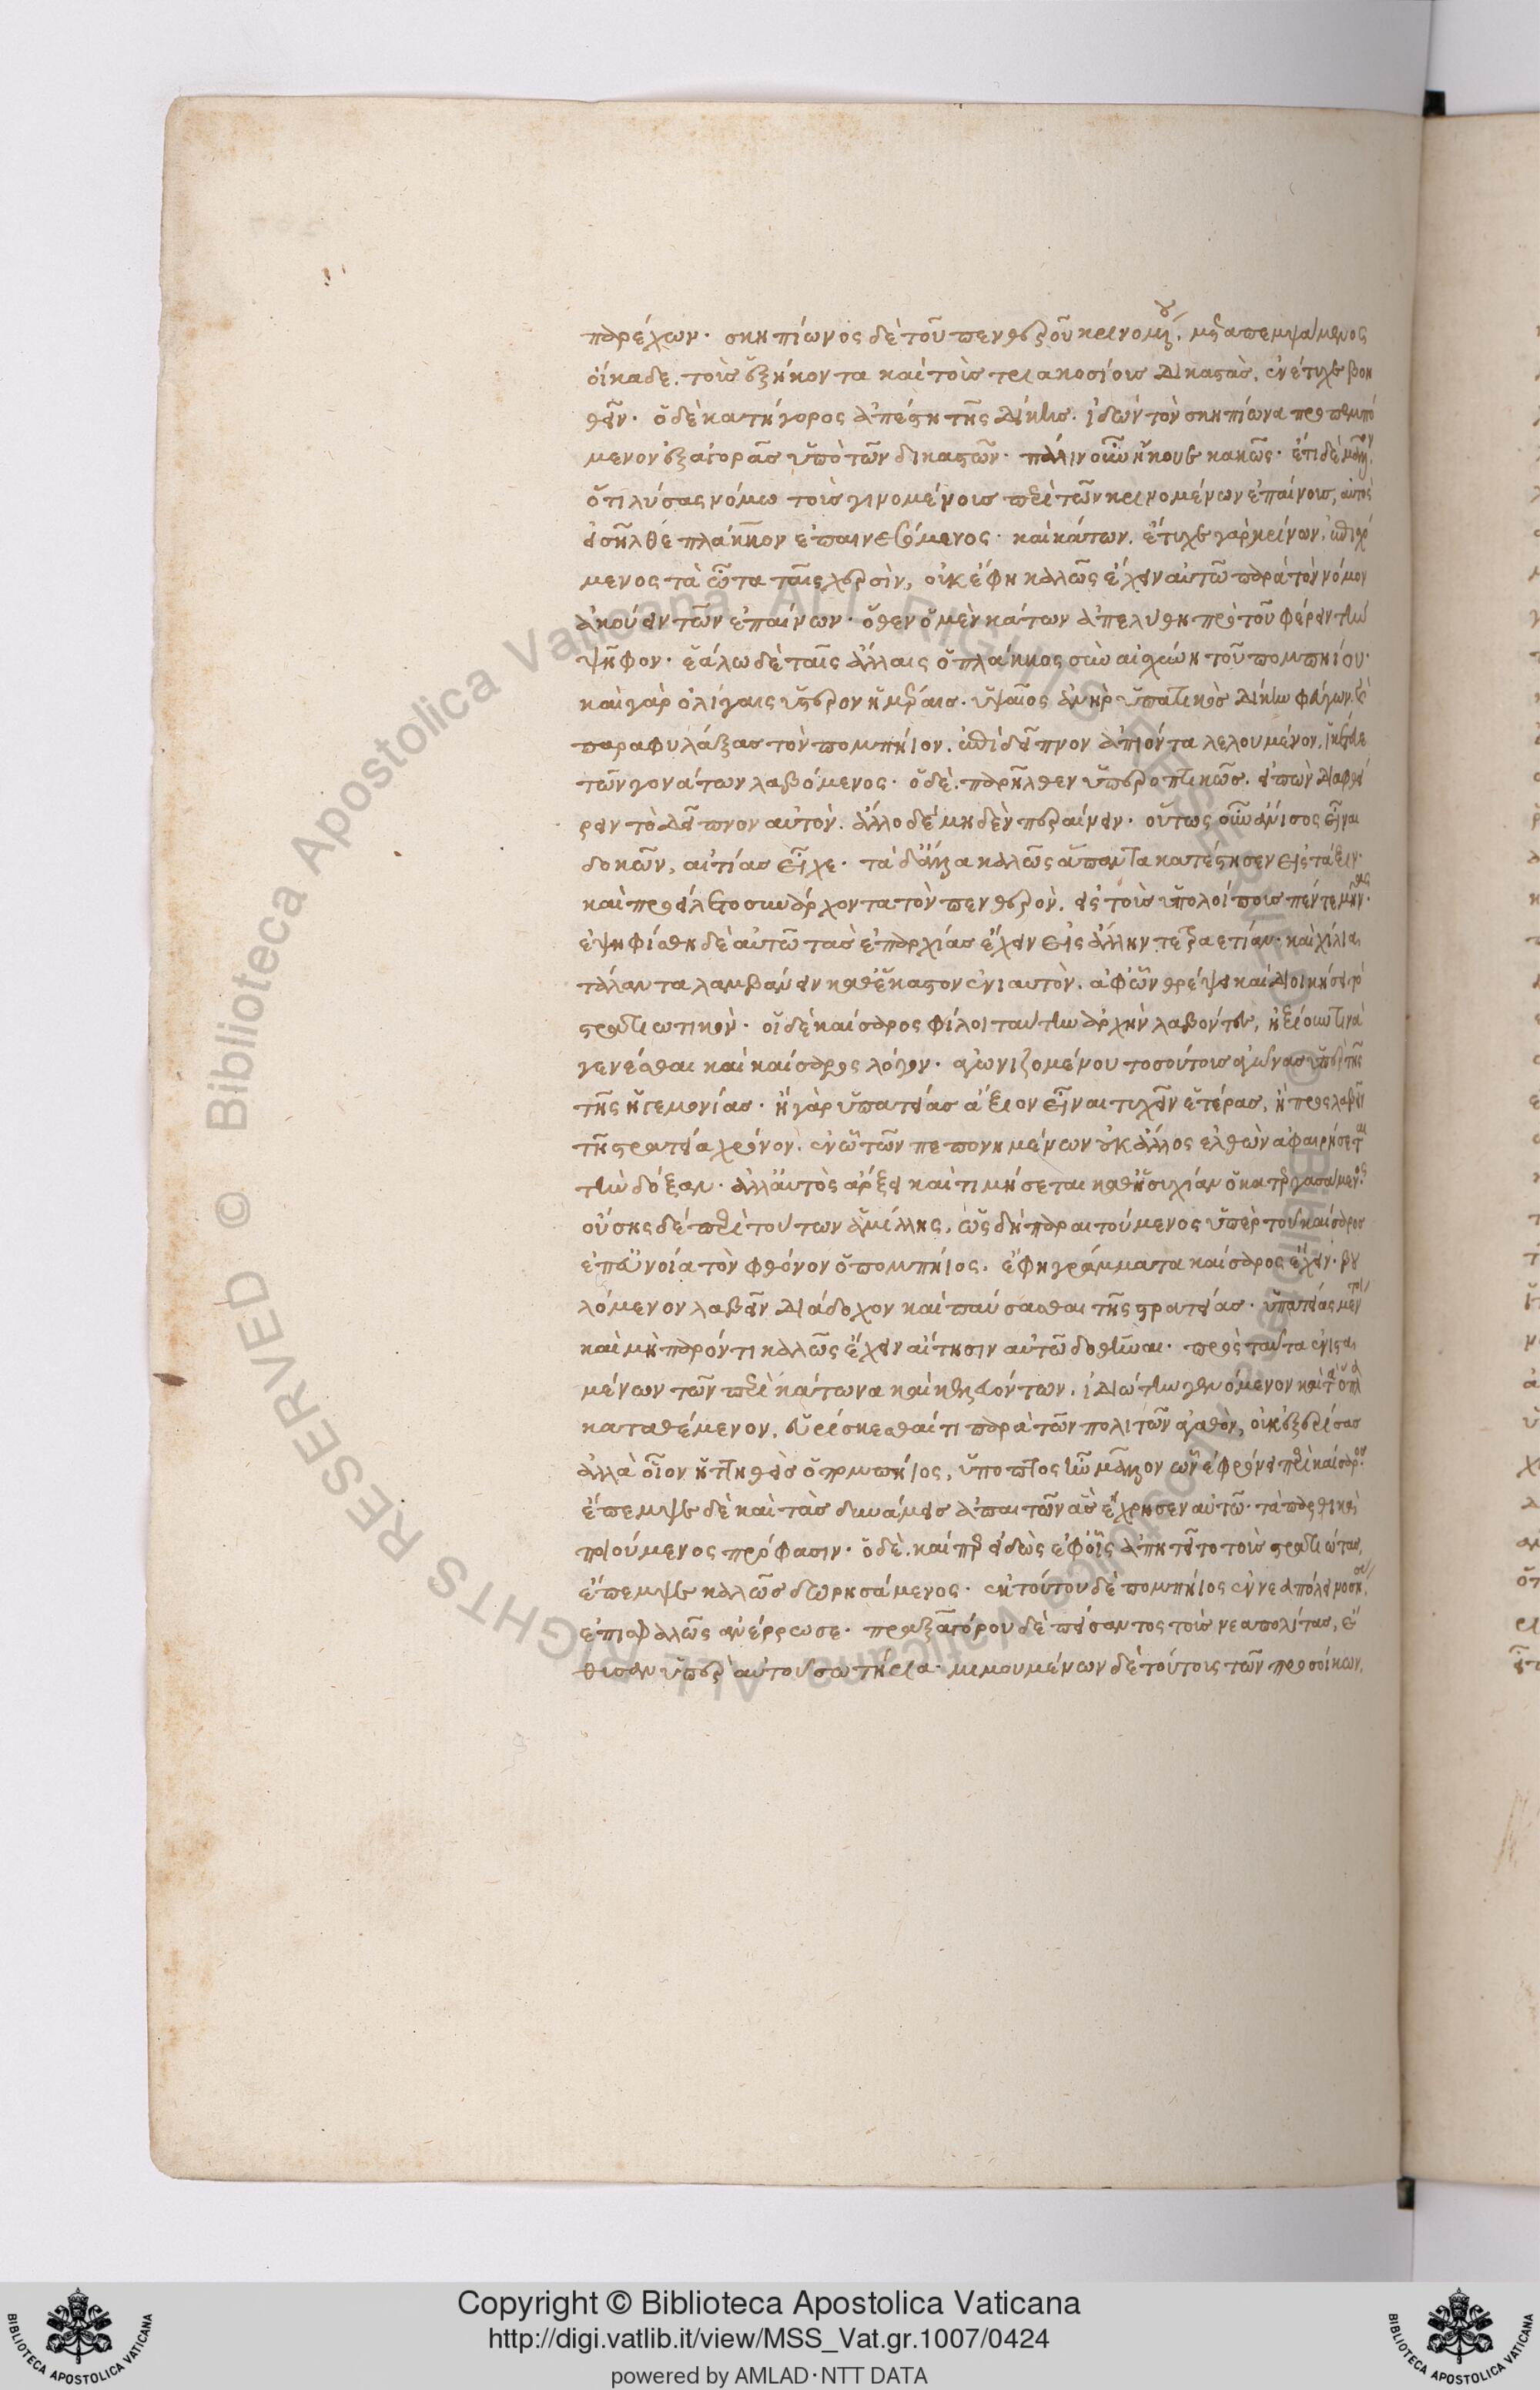 παρέχων. σκηπίωνος δὲ τοῦ πενθεροῦ κρινομένου, μεταπεμψάμενος
οἴκαδε τοὺς ἑξήκοντα καὶ τοὺς τριακοσίους δικαστὰς, ἐνέτυχε βοη
θεῖν. ὁ δὲ κατήγορος ἀπέστη τῆς δίκης. ἰδὼν τὸν σκηπίωνα προπεμπό
μενον ἐξ ἀγορᾶς ὑπὸ τῶν δικαστῶν. πάλιν οὖν ἤκουε κακῶς. ἔτι δὲ μᾶλλον,
ὅτι λύσας νόμω τοὺς γινομένους περὶ τῶν κρινομένων ἐπαίνους, αὐτὸς
εἰσῆλθε πλάγκον ἐπαινεσόμενος. καὶ κάτων, ἔτυχε γὰρ κρίνων, ἐπισχό
μενος τὰ ὦτα ταῖς χερσὶν, οὐκ ἔφη καλῶς ἔχειν αὐτῶ παρὰ τὸν νόμον
ἀκούειν τῶν ἐπαίνων. ὅθεν ὁ μὲν κάτων ἀπελύθη πρὸ τοῦ φέρειν τὴν
ψῆφον. ἑάλω δὲ ταῖς ἄλλαις ὁ πλάγκος σὺν αἰσχύνη τοῦ πομπηίου.
καὶ γὰρ ὀλίγαις ὕστερον ἡμέραις. ὑψαῖος ἀνὴρ ὑπατικὸς δίκην φεύγων, καὶ
παραφυλάξας τὸν πομπήιον, ἐπὶ δεῖπνον ἀπιόντα λελουμένον, ἱκέτευε
τῶν γονάτων λαβόμενος. ὁ δὲ παρῆλθεν ὑπεροπτικῶς. εἰπὼν διαφθεί
ρειν τὸ δεῖπνον αὐτὸν. ἄλλο δὲ μηδὲν περαίνειν. οὕτως οὖν ἄνισος εἶναι
δοκῶν, αἰτίας εἶχε. τὰ δ' ἄλλα καλῶς ἅπαντα κατέστησεν εἰς τάξιν.
καὶ προσείλετο συνάρχοντα τὸν πενθερὸν, εἰς τοὺς ὑπολοίπους πέντε μῆνας.
ἐψηφίσθη δὲ αὐτῶ τὰς ἐπαρχίας ἔχειν εἰς ἄλλην τετραετίαν. καὶ χίλια
τάλαντα λαμβάνειν καθ' ἕκαστον ἐνιαυτὸν, ἀφ' ὧν θρέψει καὶ διοικήσει τὸ
στρατιωτικὸν. οἱ δὲ καίσαρος φίλοι ταύτην ἀρχὴν λαβόντες, ἠξίουν τινὰ
γενέσθαι καὶ καίσαρος λόγον. ἀγωνιζομένου τοσούτους ἀγῶνας ὑπὲρ τῆς
τῆς ἡγεμονίας. ἢ γὰρ ὑπατείας ἄξιον εἶναι τυχεῖν ἑτέρας, ἢ προσλαβεῖν
τῆ στρατεία χρόνον. ἐν ᾧ τῶν πεπονημένων οὐκ ἄλλος ἐλθὼν ἀφαιρήσεται
τὴν δόξαν. ἀλλ' αὐτὸς ἄρξει καὶ τιμήσεται καθ' ἡσυχίαν ὁ κατεργασάμενος.
οὔσης δὲ περὶ τούτων ἁμίλλης, ὡς δὴ παραιτούμενος ὑπὲρ τοῦ καίσαρος
ἐπ' εὐνοία τὸν φθόνον ὁ πομπήιος. ἔφη γράμματα καίσαρος ἔχειν. βου
λόμενον λαβεῖν διάδοχον καὶ παύσασθαι τῆς στρατείας. ὑπατείας μέντοι
καὶ μὴ παρόντι καλῶς ἔχειν αἴτησιν αὐτῶ δοθῆναι. πρὸς ταῦτα ἐνιστα
μένων τῶν περὶ κάτωνα καὶ κελευόντων, ἰδιώτην γενόμενον καὶ τὰ ὅπλα
καταθέμενον, εὑρίσκεσθαί τι παρὰ τῶν πολιτῶν ἀγαθὸν, οὐκ ἐξερίσας
ἀλλὰ οἷον ἡττηθεὶς ὁ πομπήιος, ὕποπτος ἦν μᾶλλον ὧν ἐφρόνει περὶ καίσαρος.
ἔπεμψε δὲ καὶ τὰς δυνάμεις ἀπαιτῶν ἃς ἔχρησεν αὐτῶ. τὰ παρθικὰ
ποιούμενος πρόφασιν. ὁ δὲ, καίπερ εἰδὼς ἐφ' οἷς ἀπητεῖτο τοὺς στρατιώτας,
ἔπεμψε καλῶς δωρησάμενος. ἐκ τούτου δὲ πομπήιος ἐν νεαπόλει νοσήσας
ἐπισφαλῶς ἀνέρρωσε. πραξαγόρου δὲ πείσαντος τοὺς νεαπολίτας, ἔ
θυσαν ὑπὲρ αὐτοῦ σωτήρια. μιμουμένων δὲ τούτους τῶν προσοίκων,
Copyright © Biblioteca Apostolica Vaticana
http://digi.vatlib.it/view/MSS_Vat.gr.1007/0424
powered by AMLAD·NTT DATA